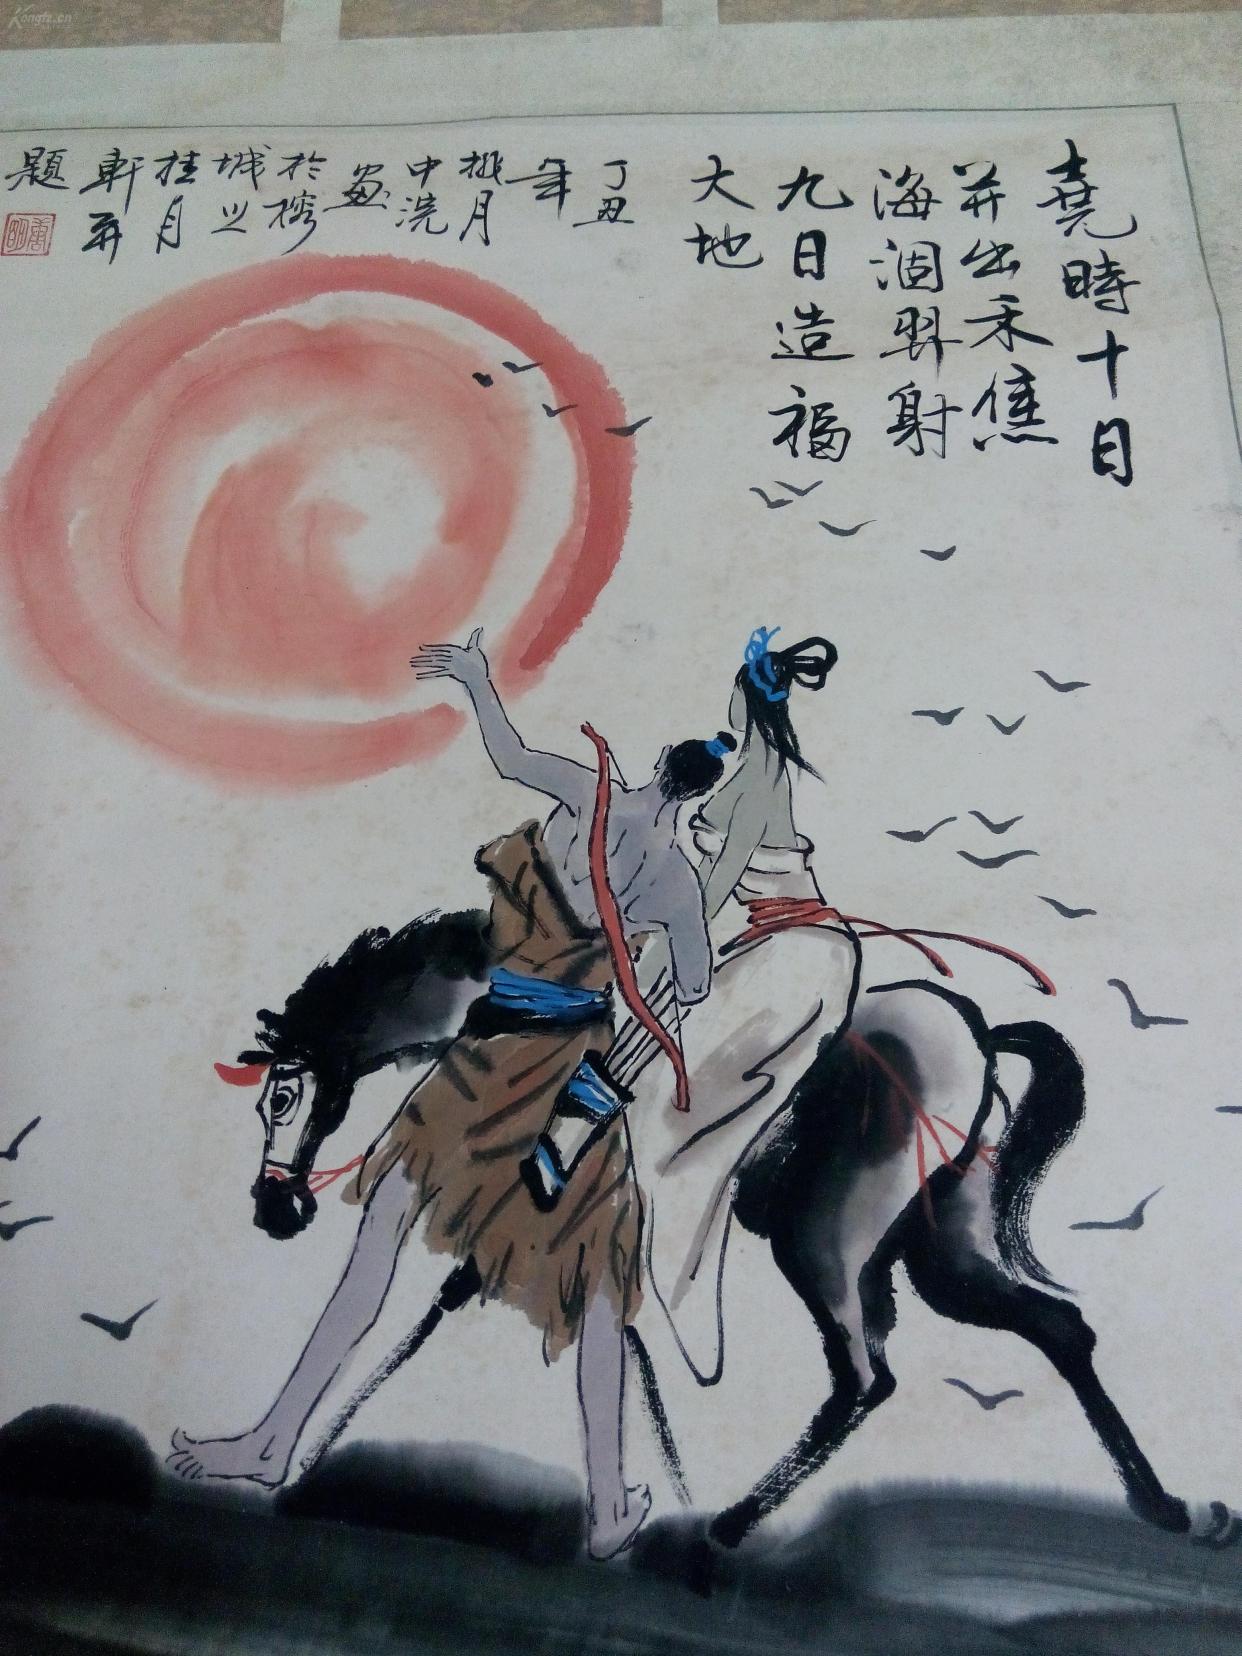 堯時十日
并出禾焦
海涸羿射
九日造福
大地
丁丑
年
桃月
中浣
畫
於榕
城之
桂月
軒并
題
Kongfz.cn